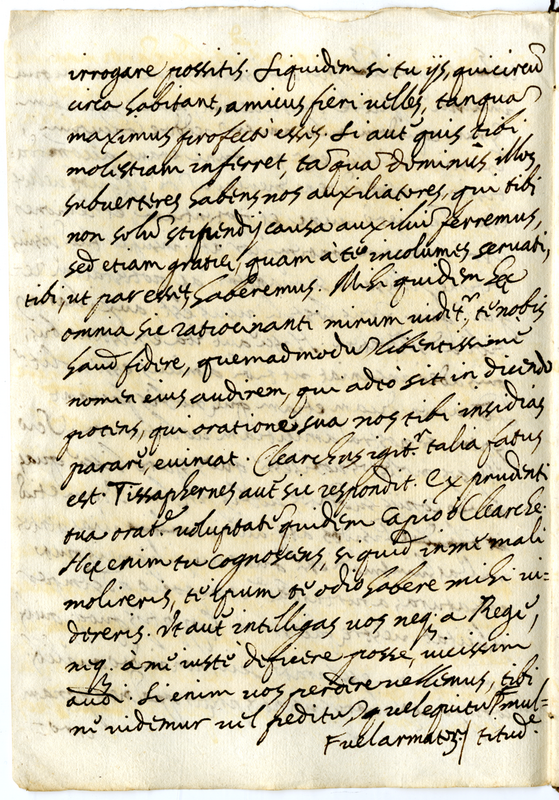 irrogare possitis. Siquidem si tu ijs, qui circũ
circa habitant, amicus fieri uelles, tanquã
maximus profecto esses. Si autẽ quis tibi
molestiam inferret, tãquã dominus illos
subuerteres habens nos auxiliatores, qui tibi
non solũ stipendij causa auxiliũ ferremus,
sed etiam gratiẽ, quam à te incolumes seruati,
tibi, ut par esset, haberemus. Mihi quidem hec
omnia sic ratiocinanti mirum uidet.ʳ, te nobis
haud fidere, quemadmodũ libentissimè
nomen eius audirem, qui adeò sit in dicendo
potens, qui oratione sua nos tibi insidias
parare, euincat. Clearchus igit.ʳ talia fatus
est. Tissaphernes autẽ sic respondit. Ex prudenti
tua orat.ᵉ uoluptatẽ quidem capio ò Clearche.
Hec enim tu cognoscens, si quid in me mali
molireris, te ipsum te odio habere mihi ui=
dereris. Ut autẽ intelligas uos neq. à Rege,
neq. à me iustè deficere posse, uicissim
audi. Si enim uos perdere uellemus, tibi
ne uidemur uel peditũ, uel equitũ mul=
F uel armatorꝝ/ titud.ᵉ